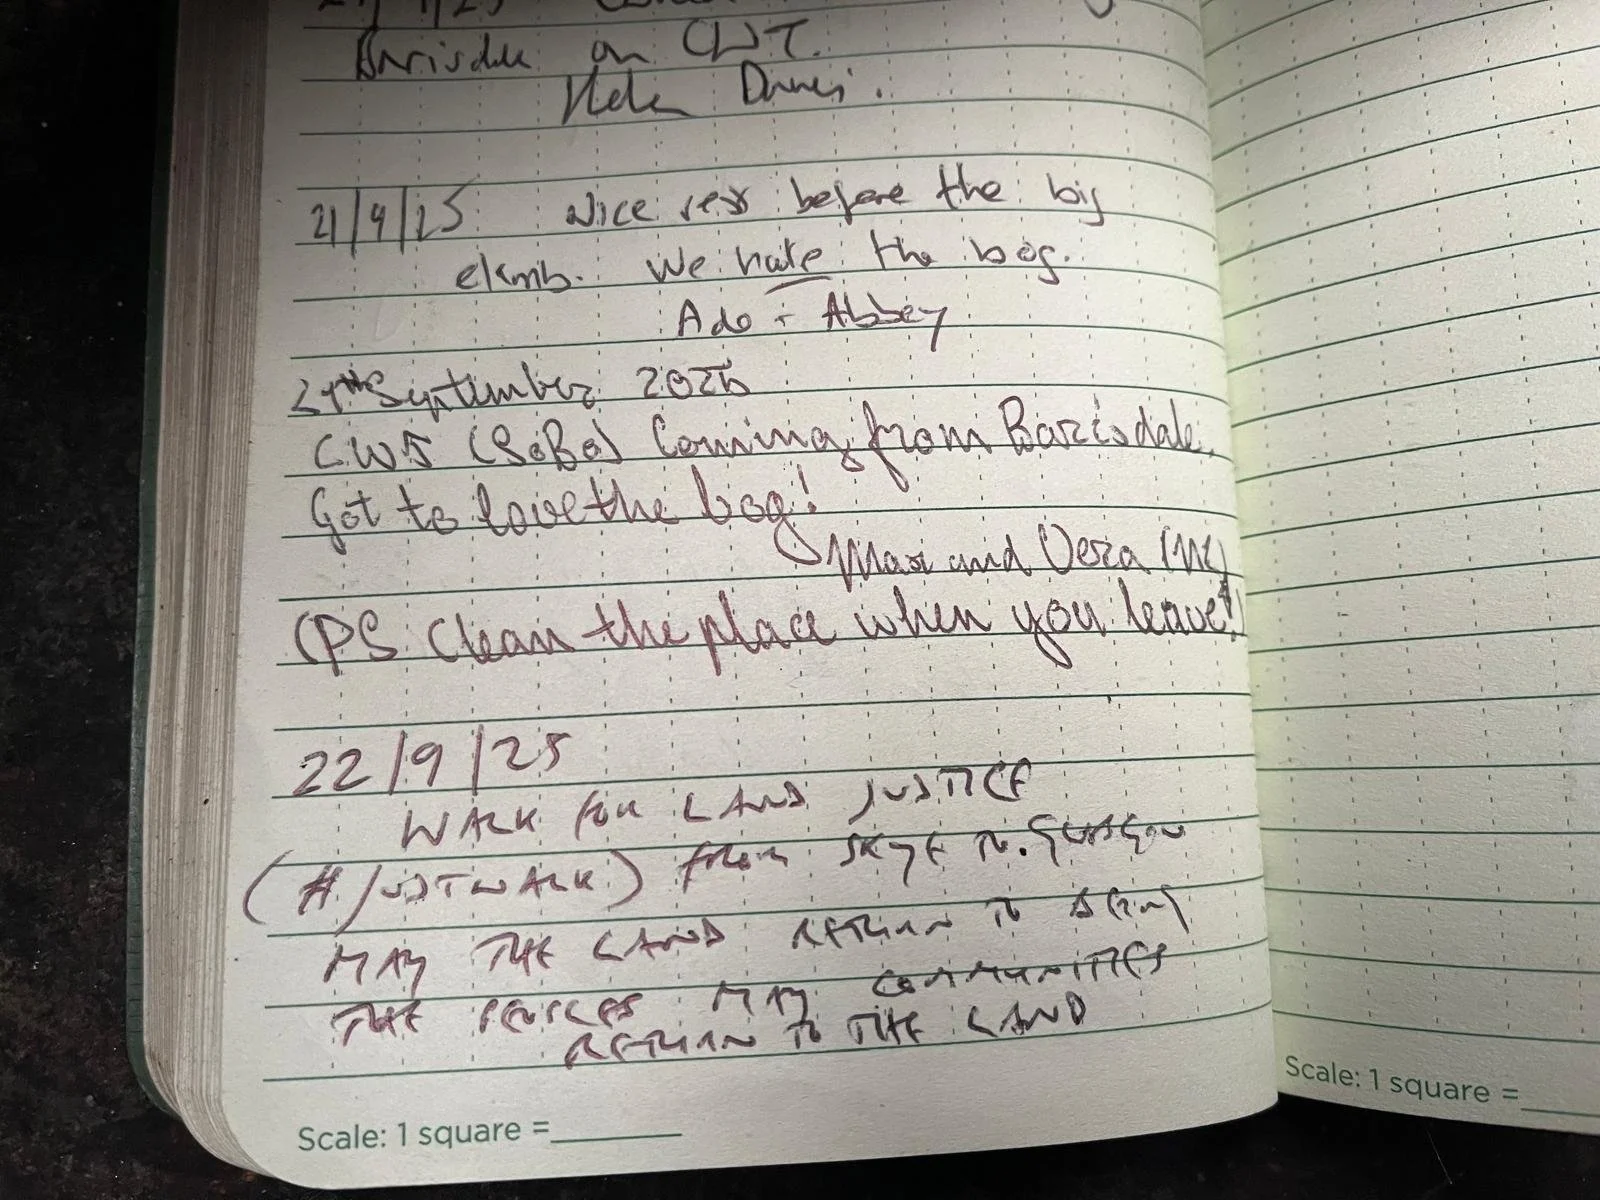 Barisdale on CWT.
21/9/25 Nice rest before the big
climb. We hate the bog.
Ado + Abbey
21th September 2025
CWT (SoBo) Coming from Barisdale.
Got to love the bog!
Max and Vera (NL)
(PS Clean the place when you leave!)
22/9/25
WALK FOR LAND JUSTICE
(#JUSTWALK) FROM SKYE TO GLASGOW
MAY THE LAND RETURN TO BEING
THE PEOPLES MAY COMMUNITIES
RETURN TO THE LAND
Scale: 1 square =
Scale: 1 square =